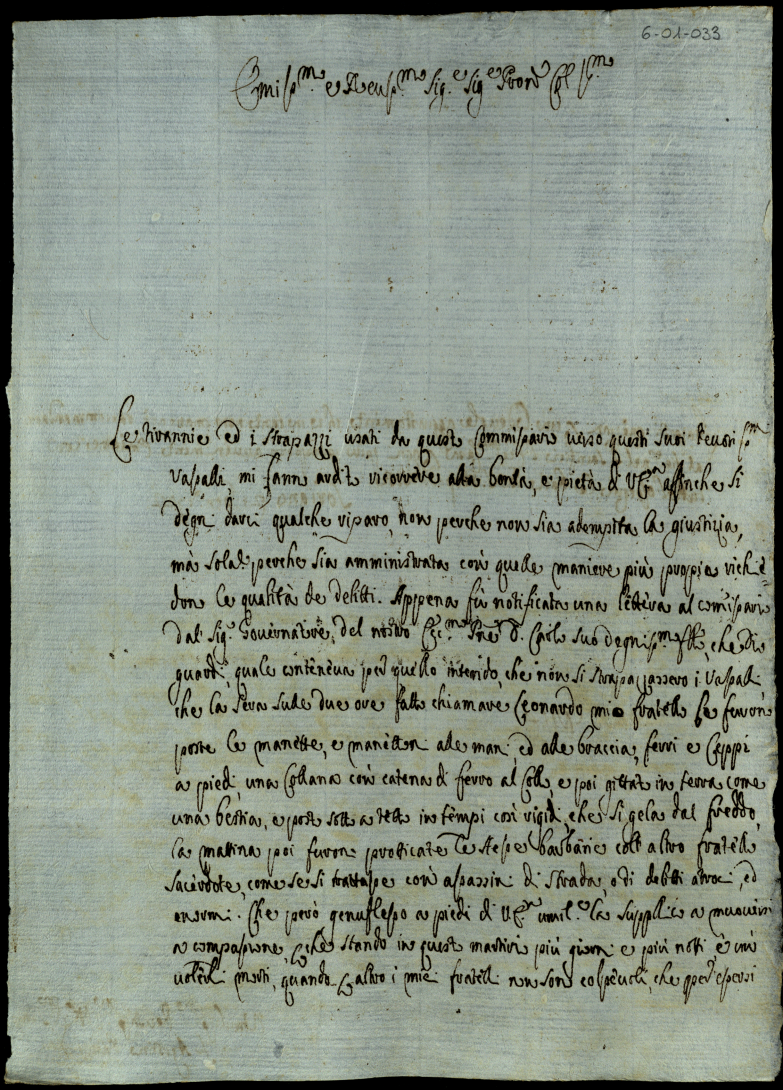 6-01-033
Emiss.mo e Reuss.mo Sig.e Sig.e Pron.e Col.mo
Le tirannie ed i strapazzi usati da questo Commissario uerso questi suoi Deuotiss.mi
Vassalli, mi fanno ardito ricorrere alla bontà, e pietà di V.Em.a affinche si
degni darci qualche riparo, non perche non sia adempita la giustizia,
mà solo perche sia amministrata con quelle maniere più proprie richie=
dono le qualità de delitti. Appena fù notificata una lettera al comissario
dal Sig.e Gouernatore, del nostro Ecc.mo Pne D. Carlo suo degniss.mo fllo, che Dio
guardi, quale conteneua per quello intendo, che non si strapazzassero i Vassalli
che la sera sulle due ore fatto chiamare Leonardo mio fratello le furon
poste le manette, e manetton alle mani, ed alle braccia, ferri e Ceppi
a piedi una Collana con catena di ferro al Collo, e poi gittato in terra come
una bestia, e posto sotto a tetto in tempi così rigidi, che si gela dal freddo,
la mattina poi furon pratticate le stesse barbarie coll altro fratello
sacerdote, come se si trattasse con assassini di strada, o di delitti atroci, ed
enormi. Che però genuflesso a piedi di V.Em.a umil.e la supplico a muouersi
a compassione, che stando in questi martiri più giorni e più notti, è un
uolerli morti, quando altro i miei fratelli non sono colpeuoli, che per essersi